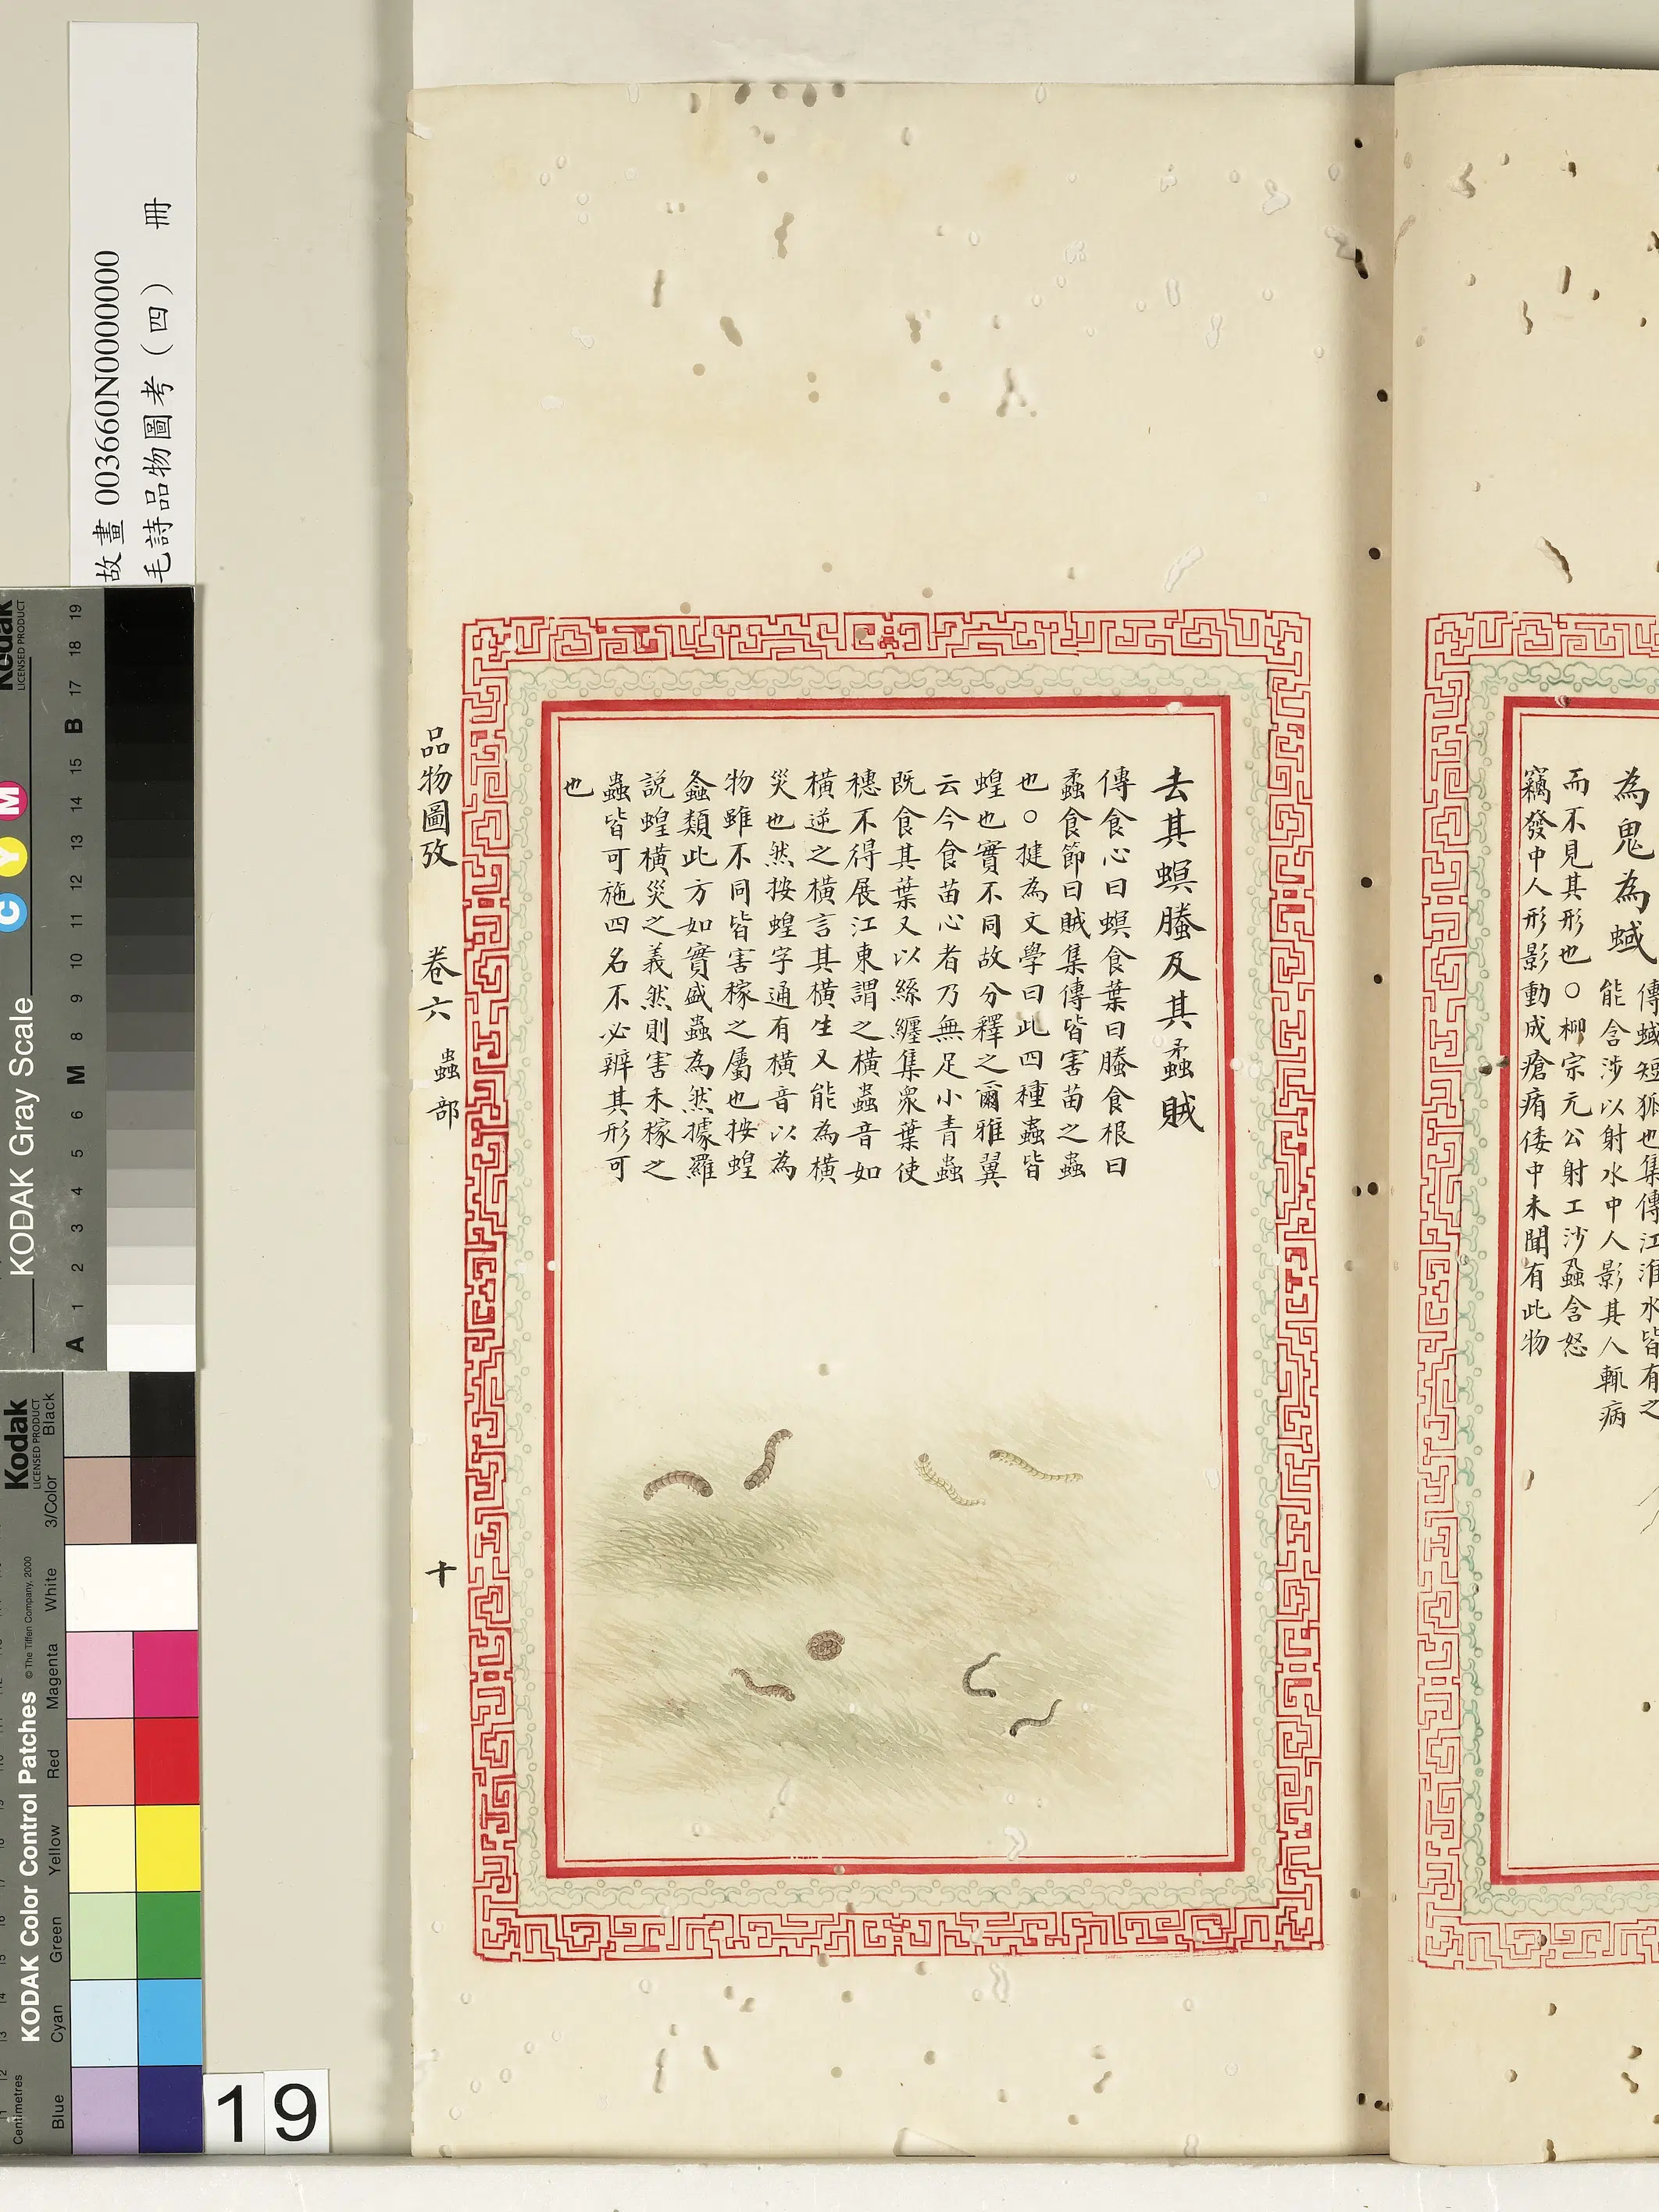 為鬼為蜮
傳蜮短狐也集傳江淮水皆有之
能含沙以射水中人影其人輒病
而不見其形也○柳宗元公射工沙蝨含怒
竊發中人形影動成瘡痏倭中未聞有此物
去其螟螣及其蟊賊
傳食心曰螟食葉曰螣食根曰
蟊食節曰賊集傳皆害苗之蟲
也○犍為文學曰此四種蟲皆
蝗也實不同故分釋之爾雅翼
云今食苗心者乃無足小青蟲
既食其葉又以絲纏集衆葉使
穗不得展江東謂之橫蟲音如
橫逆之橫言其橫生又能為橫
災也然按蝗字通有橫音以為
物雖不同皆害稼之屬也按蝗
螽類此方如實盛蟲為然據羅
説蝗橫災之義然則害禾稼之
蟲皆可施四名不必辨其形可
也
品物圖攷 卷六 蟲部 十
故畫 003660N0000000
毛詩品物圖考（四） 冊
KODAK Gray Scale
Kodak
LICENSED PRODUCT
A 1 2 3 4 5 6 M 8 9 10 11 12 13 14 15 B 17 18 19
C Y M
KODAK Color Control Patches
© The Tiffen Company, 2000
Kodak
LICENSED PRODUCT
Centimetres
Blue Cyan Green Yellow Red Magenta White 3/Color Black
19